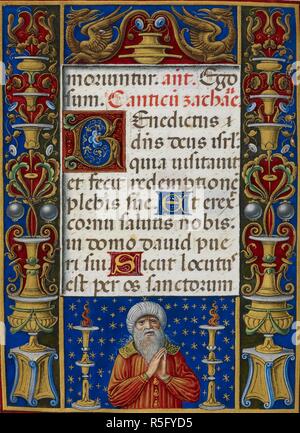 moruntur. añt. Ego
sum. Canticũ zachaē.
Benedictus
dñs deus isrl.
quia uisitauit
et fecit redemptionē
plebis sue. Et erex
cornu salutis nobis.
in domo dauid pue
ri sui Sicut locutus
est per os sanctorum
alamy
R5FYD5
www.alamy.com